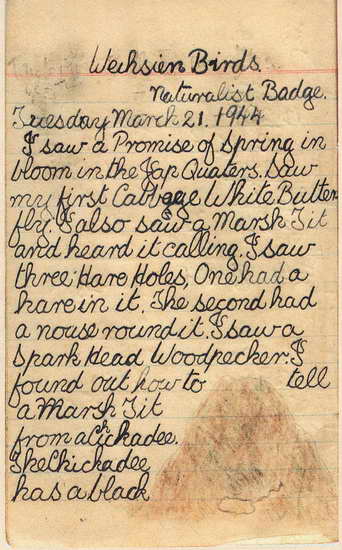 Weihsien Birds.
Naturalist Badge.
Tuesday March 21. 1944
I saw a Promise of Spring in
bloom in the Jap Quaters. Saw
my first Cabbage White Butter
fly. I also saw a Marsh Tit
and heard it calling. I saw
three Hare Holes, One had a
hare in it. The second had
a nouse round it. I saw a
Spark Head Woodpecker. I
found out how to tell
a Marsh Tit
from a Chickadee.
The Chickadee
has a black